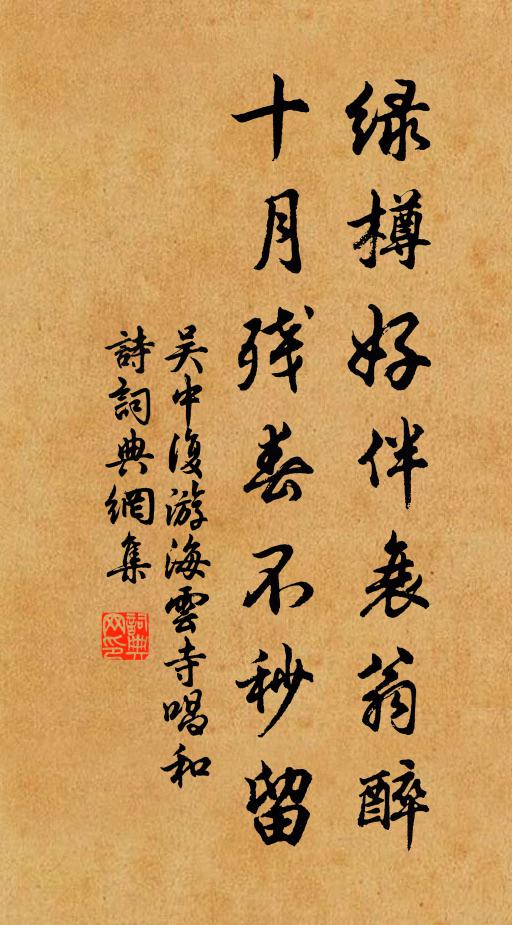 绿樽好伴衰翁醉
十月残春不秒留
吴中復游海雲寺唱和
詩詞典網集
詞典网印